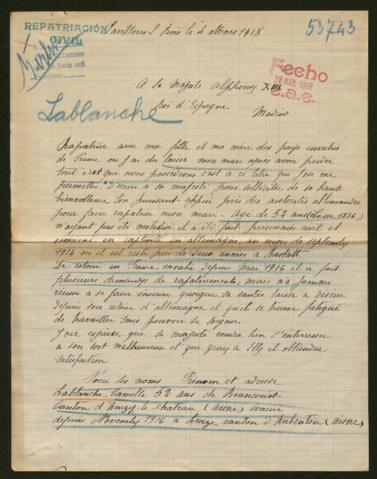 REPATRIACIÓN
CIVIL
53743
le 4 Mars 1918
Fecho
28 MAR. 1918
c.a.c.
A sa Majesté Alphonse XIII
Roi d'Espagne
Madrid
Lablanche
Rapatriée avec ma fille et ma mère des pays envahis
de l'Aisne où j'ai du laisser mon mari après avoir perdu
tout ce que nous possédions c'est à ce titre que j'ose me
permettre d'écrire à sa majesté pour solliciter de sa haute
bienveillance son puissant appui près des autorités allemandes
pour faire rapatrier mon mari. Agé de 52 ans
n'ayant pas été mobilisé il a été fait prisonnier civil et
emmené en captivité en allemagne au mois de septembre
1914 où il est resté près de deux années à Rastatt
De retour en France envahie depuis Mai 1916 il a fait
plusieurs demandes de rapatriements, mais n'a jamais
réussi à se faire évacuer quoique sa santé laisse à désirer
depuis son retour d'allemagne et qu'il se trouve fatigué
de travailler sans pouvoir se soigner
J'ose espérer que sa majesté voudra bien s'intéresser
à son sort malheureux et que grâce à Elle j'obtiendrai
satisfaction
Voici ses noms Prénom et adresse
Lablanche Camille 52 ans de Brancourt
Canton d' le (Aisne) évacué
depuis Novembre 1916 à Leuze canton d'Aubenton (Aisne)